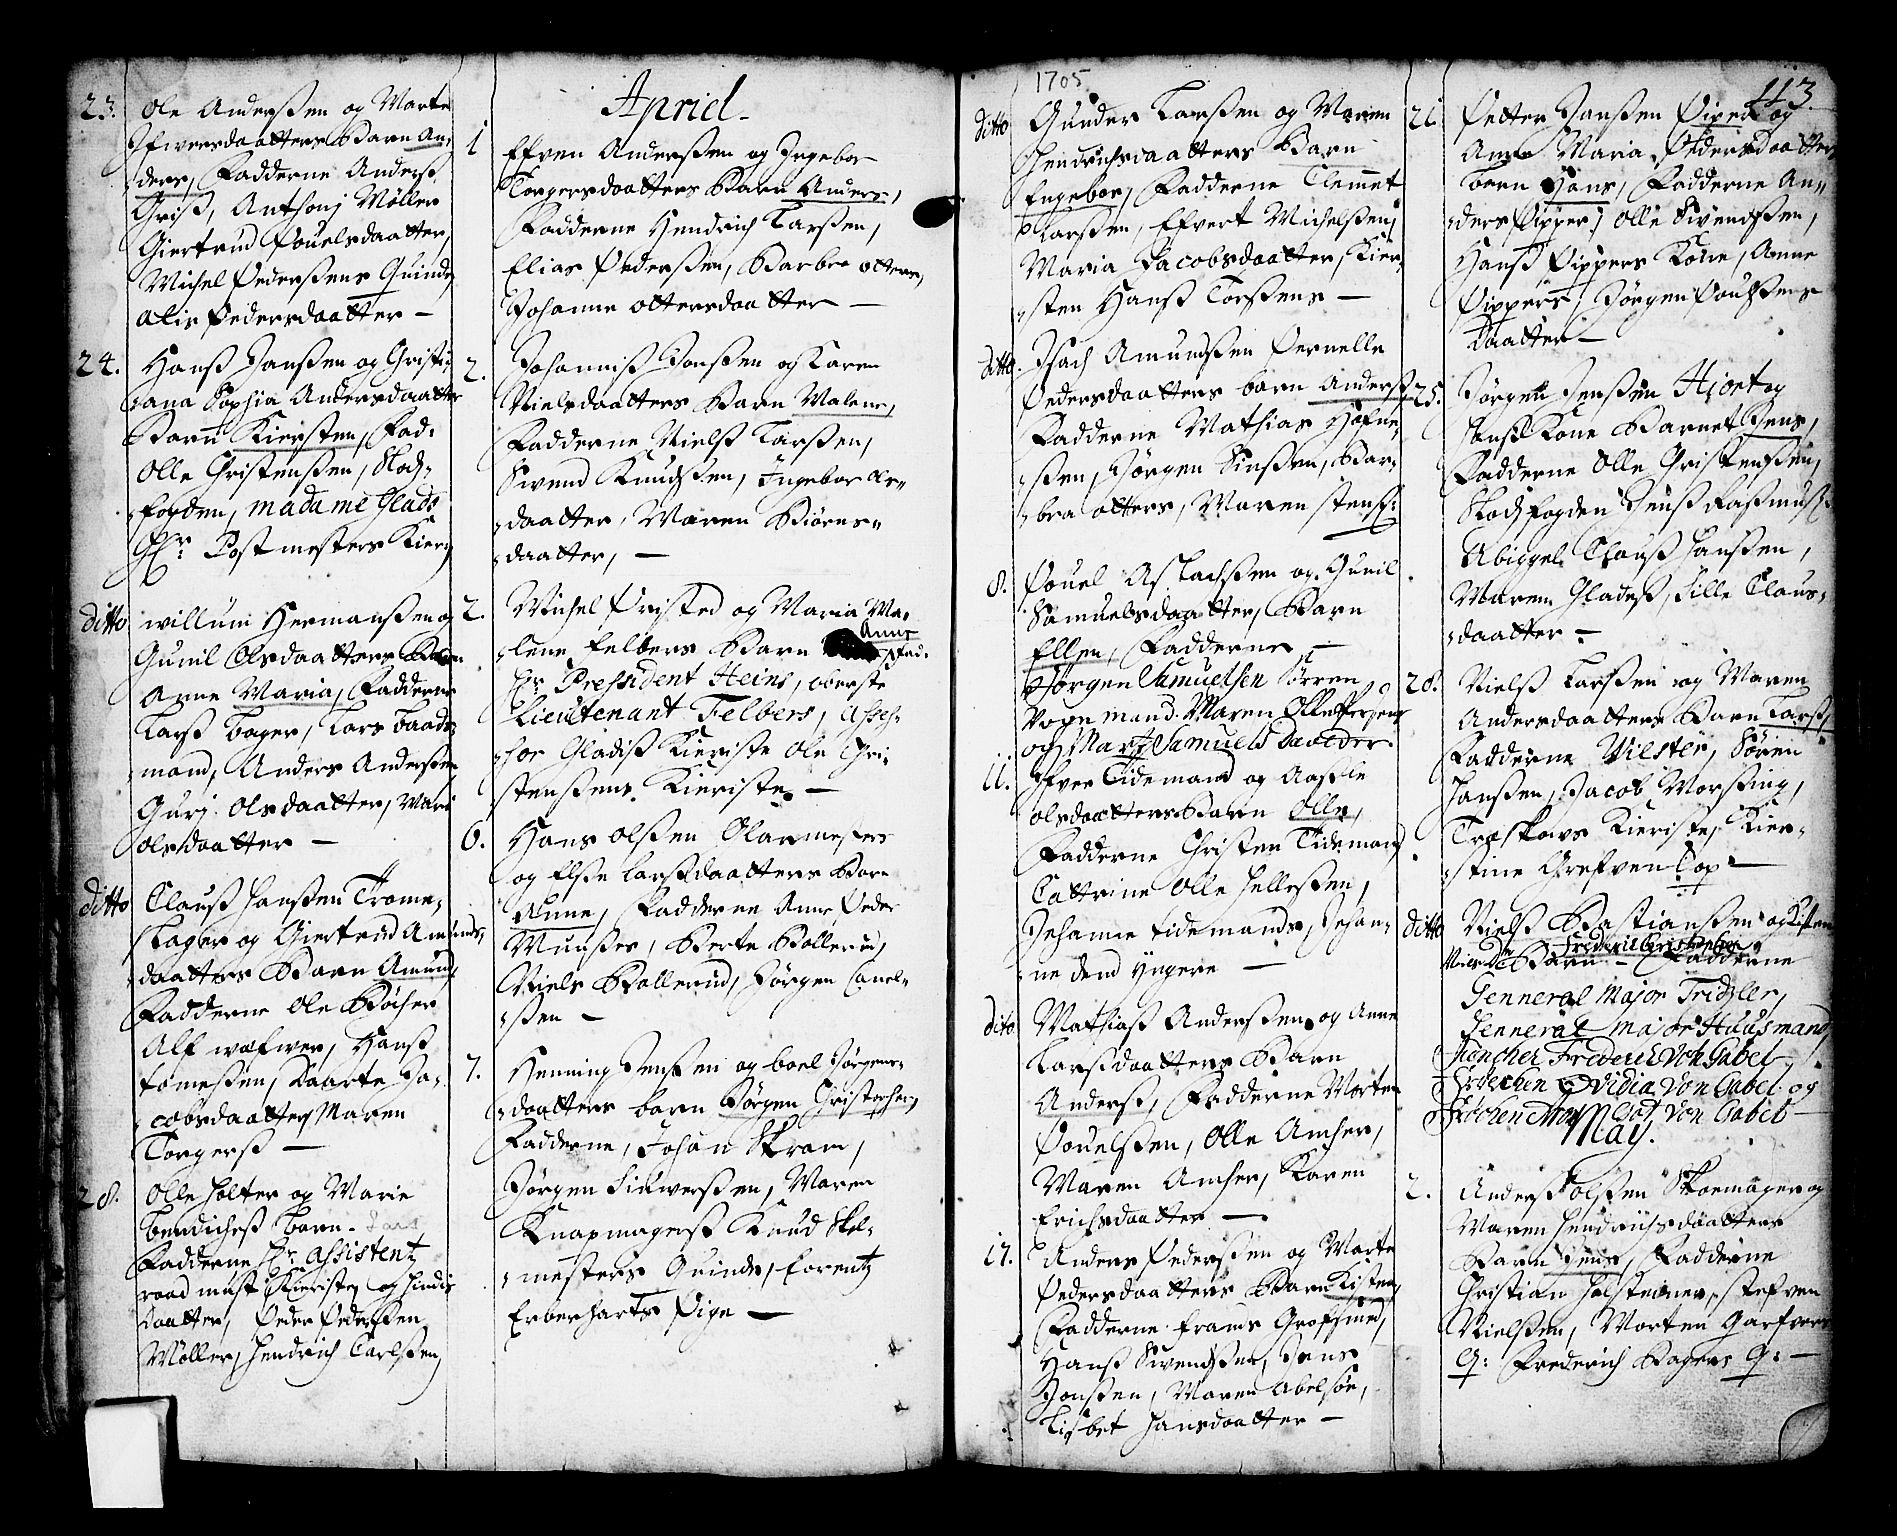 23. Ole Anderßen og Marte
Ifwersdaatters Barn An,
ders, Fadderne Anderß
Griß, Anthonj Møller
Giertrud Pouelsdaatter,
Michel Pederßens Quinde,
Alis Pedersdaatter —
24. Hanß Janßen og Christi,
ana Sophia Andersdaatter
Barn Kiersten, Fad:
Olle Christenßen, Slodz,
fogden, madame Glads
Hr. Postmesters Kiery
ditto willum Hermanßen og
Gunil Olsdaatters Barn
Anne Maria, Fadderne
Larß bager, Lars baads,
mand, Anders Anderßen
Gurj Olsdaatter, Mari
olsdaatter —
ditto Clauß Hanßen Trome,
slager og Giertrud Amunds,
daatters Barn Amund,
Fadderne Ole Bøcher
Alf wæfwer, Hanß
tomeßen, Maarte Ja,
cobsdaatter, Maren
Torgerß —
28. Olle Holter og Marie
bendicheß barn. Lars
Fadderne Hr. Assistentz
raad must Kieriste og
daatter, Peder Pederßen
Møller, Hendrich Carlßen,
Apriel.
1 Effven Anderßen og Ingebor
Torgersdaatters Barn Anders,
Fadderne Hendrich Larßen,
Elias Pederßen, Barbra Otters,
Johanne ottersdaatter —
2. Johanniß Jonßen og Karen
Nielsdaatters Barn Malene,
Fadderne Nielß Larßen,
Swend Knudßen, Ingebor
daatter, Maren Biørns,
daatter, —
2. Michel Pristed og Maria Ma,
lene Felbers Barn Anne Fad:
Hr. Pressident Heins, oberste
Lieutenant Felbers, Asses,
sor Gladiß Kieriste Ole Chri,
stenßens Kieriste. —
6. Hans olßen Glarmesters
og Elße Larßdaatters Barn
Anne, Fadderne Anne Peder
Munßes, Berte Bollerud,
Niels Bollerud, Jørgen Canel,
ßen —
7. Henning Jenßen og boel Jørgens,
daatters barn Jørgen Christopher,
Fadderne, Johan Skrám,
Jørgen Siwerßen, Maren
Knapmagerß Knud Skol,
mesters Quinde, Lorentz
Erberharts Pige —
1705
ditto Gunder Larßen og Maren
Hendrichsdaatters Barn
Engebor, Fadderne Clemet
Larßen, Effvert Michelßen,
Maria Jacobsdaatter, Kier,
sten Hanß Torßens —
ditto. Isach Amundßen Pernelle
Pedersdaatters barn Anderß
Fadderne Mathias Hofne,
ßen, Jørgen Sinßen, Bar,
bra otters, Maren stenß:
8. Pouel Aslachßen og Gunil
Samuelsdaatter, Barn
Ellen, Fadderne, —
Jørgen Samuelsen Sørren
Vogn mand. Maren Olleffsens
och Marte Samuels Daatter.
11. Ifver Tidemand og Aaßille
olsdaatters Barn Olle,
Fadderne Christen Tidemand
Cattrine Olle Helleßen,
Johanne tidemands, Johan,
ne dend yngere —
dito Mathiaß Anderßen, og Anne
Larsdaatters Barn
Anderß, Fadderne Morten
Pouelßen, Olle Amher,
Maren Amher, Karen
Erichsdaatter —
17. Anders Pederßen og Marte
Pedersdaatters Barn Kisten,
Fadderne frands Grofsmed,
Hanß Swendßen, Jens
Jonßen, Maren Abelsøe,
Lisbet Hansdaatter —
113.
21. Petter Janßen Piper og
Anne Maria Pedersdaatters
barn Hans, Fadderne An,
ders Pipper, Olle Swendßen,
Hanß Pippers Kone, Anne
Pippers, Jørgen Poulßens
daatter —
25. Jørgen Jenßen Hjort og
Hanß Kone Barnet Jens,
Fadderne Olle Christenßen,
Slodzfogden Jenß Raßmuß.
Abiggel Clauß Hanßen,
Maren Gladeß, Sille Claus,
daatter —
28. Nielß Larßen og Maren
Andersdaatters Barn Larß,
Fadderne Vilster, Søren
Hanßen, Jacob Morßing,
Træskows Kieriste, Kier,
stine Grefven Top —
ditto Nielß Bastianßen og Kisten
Frederic Christopher
Barn — Fadderne
Genneral Major Tridzler,
Genneral major Huusmand,
Juncher Frederich Von Gabel,
Frøichen Ovidia von Gabel og
Frøchen von Gabel —
May.
2. Anderß olßen Skoemager og
Maren Hendrichsdaatters
Barn Jens, Fadderne
Christian Holsteiner, stefven
Nielßen, Morten Garfvers
Q: Frederich Bagers Q: —